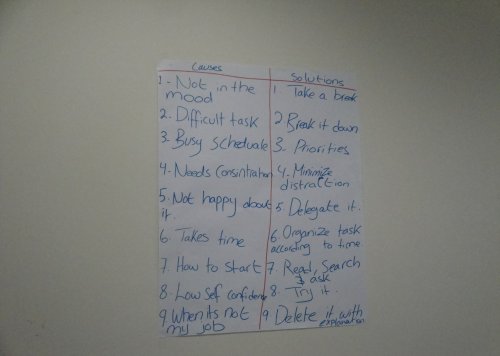 Causes
Solutions
1- Not in the
mood
1. Take a break
2. Difficult task
2 Break it down
3. Busy scheduale
3. Priorities
4. Needs Consintration
4. Minimize
distraction
5. Not happy about
it.
5. Delegate it.
6. Takes time
6 Organize task
according to time.
7. How to start
7. Read, Search
& ask
8. Low Self confidence
8. Try it.
9 When its not
my job
9 Delete it with
explanation